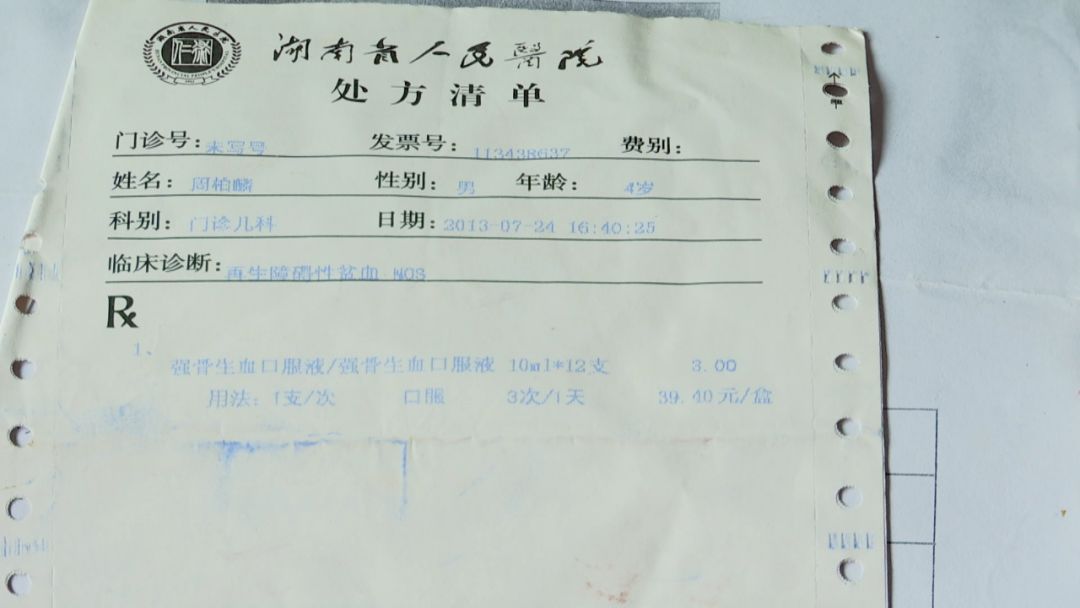 湖南省人民醫院
处方清单
门诊号：未写号 发票号：113438637 费别：
姓名：周柏麟 性别：男 年龄：4岁
科别：门诊儿科 日期：2013-07-24 16:40:25
临床诊断：再生障碍性贫血 NOS
Rx
1、
强骨生血口服液/强骨生血口服液 10ml*12支 3.00
用法：1支/次 口服 3次/1天 39.40元/盒